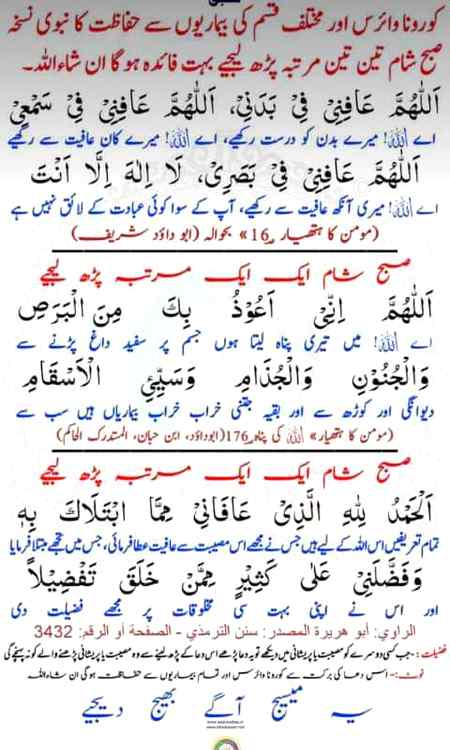 کورونا وائرس اور مختلف قسم کی بیماریوں سے حفاظت کا نبوی نسخہ
صبح شام تین تین مرتبہ پڑھ لیجیے بہت فائدہ ہوگا ان شاءاللہ۔
اَللّٰهُمَّ عَافِنِیْ فِیْ بَدَنِیْ، اَللّٰهُمَّ عَافِنِیْ فِیْ سَمْعِیْ
اے اللہ! میرے بدن کو درست رکھیے، اے اللہ! میرے کان عافیت سے رکھیے
اَللّٰهُمَّ عَافِنِیْ فِیْ بَصَرِیْ، لَا اِلٰهَ اِلَّا اَنْتَ
اے اللہ! میری آنکھ عافیت سے رکھیے، آپ کے سوا کوئی عبادت کے لائق نہیں ہے
(مومن کا ہتھیار ۔16» بحوالہ (ابو داؤد شریف)
صبح شام ایک ایک مرتبہ پڑھ لیجیے
اَللّٰهُمَّ اِنِّیْ اَعُوْذُ بِكَ مِنَ الْبَرَصِ
اے اللہ! میں تیری پناہ لیتا ہوں جسم پر سفید داغ پڑنے سے
وَالْجُنُوْنِ وَالْجُذَامِ وَسَیِّئِ الْاَسْقَامِ
دیوانگی اور کوڑھ سے اور بقیہ جتنی خراب خراب بیماریاں ہیں سب سے
(مومن کا ہتھیار» اللہ کی پناہ ۔176(ابوداؤد، ابن حبان، المستدرک الحاکم)
صبح شام ایک ایک مرتبہ پڑھ لیجیے
اَلْحَمْدُ لِلّٰهِ الَّذِیْ عَافَانِیْ مِمَّا ابْتَلَاكَ بِهٖ
تمام تعریفیں اس اللہ کے لیے ہیں جس نے مجھے اس مصیبت سے عافیت عطا فرمائی، جس میں تجھے مبتلا فرمایا
وَفَضَّلَنِیْ عَلٰی كَثِیْرٍ مِمَّنْ خَلَقَ تَفْضِیْلاً
اور اس نے اپنی بہت سی مخلوقات پر مجھے فضیلت دی
الراوي: أبو هريرة المصدر: سنن الترمذي - الصفحة أو الرقم: 3432
فضیلت:۔ جب کسی دوسرے کو مصیبت یا پریشانی میں دیکھے تو یہ دعا پڑھے اس دعا کے پڑھ لینے سے وہ مصیبت یا پریشانی پڑھنے والے کو نہ پہنچے گی
نوٹ:۔ اس دعا کی برکت سے کورونا وائرس اور تمام بیماریوں سے حفاظت ہوگی ان شاءاللہ
یہ میسیج آگے بھیج دیجیے